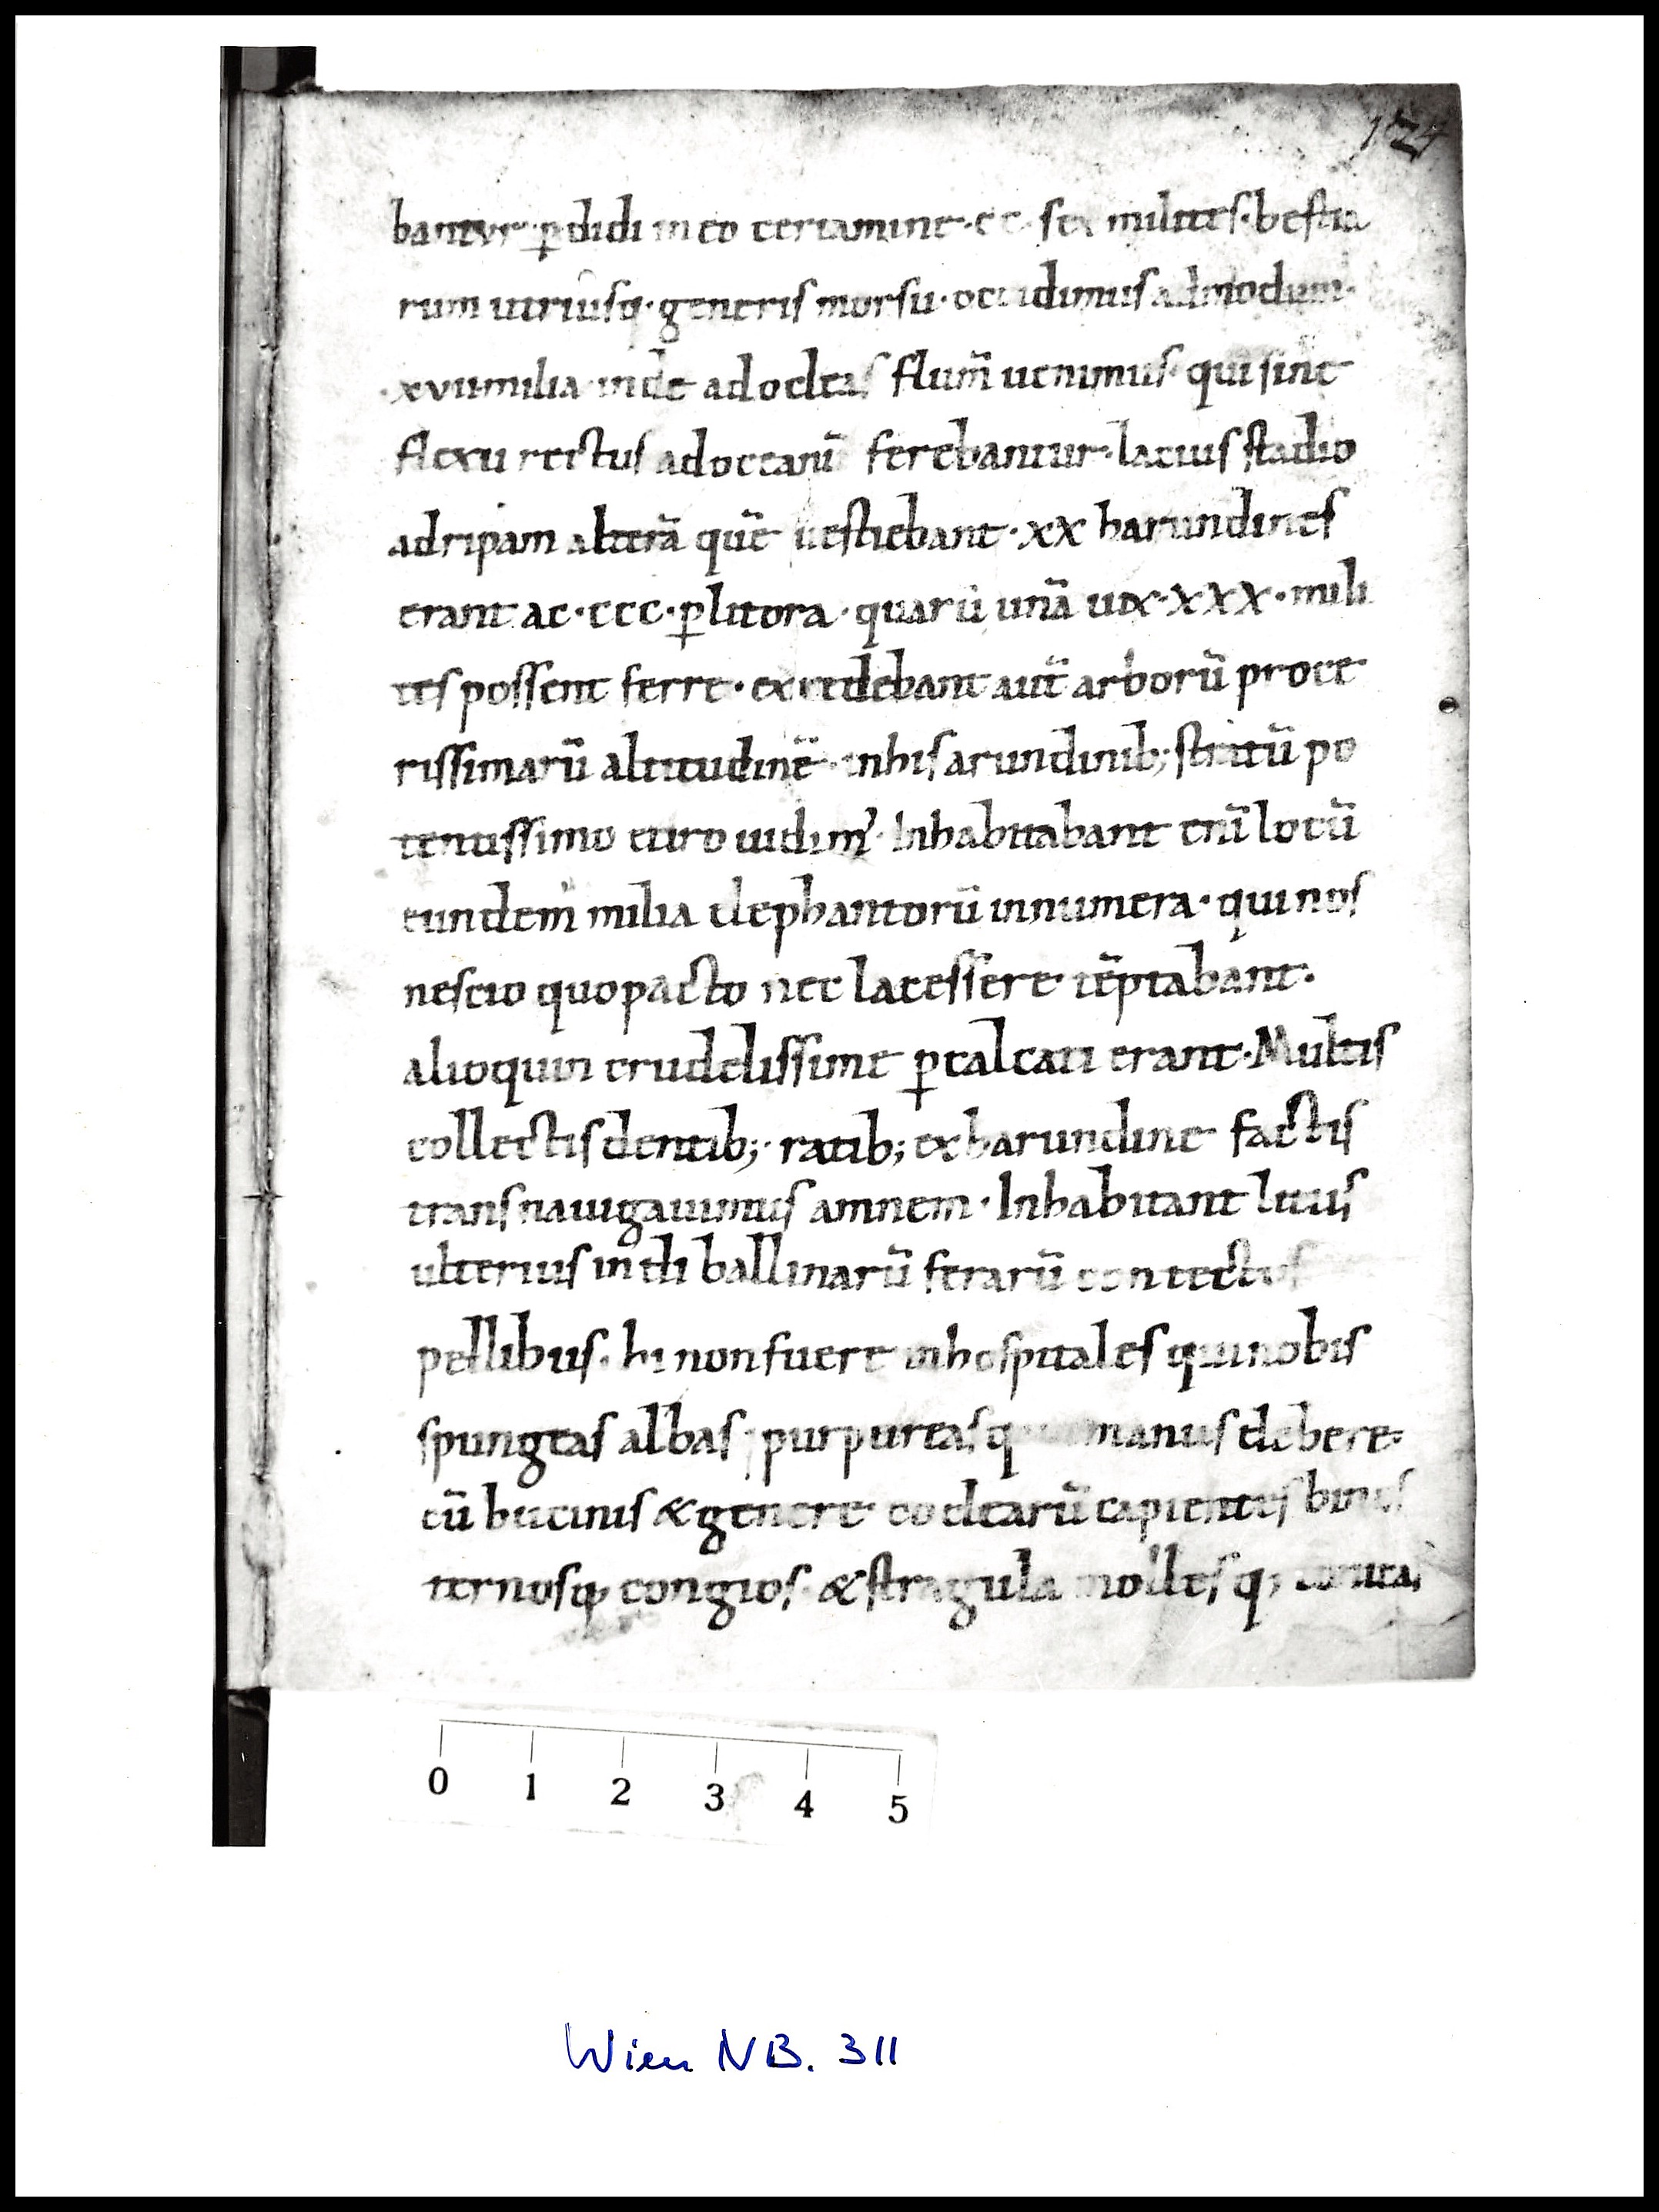 124
bantur ꝑdidi in eo certamine · cc · sex milites · bestia
rum utriusq · generis morsu · occidimus admodum ·
· xvii milia inde ad ocleas flum̄ uenimus · qui sine
flexu rectus ad oceanū ferebantur · latius stadio
ad ripam alterā quē uestiebant · xx harundines
erant ac · ccc · ꝑ litora · quarū unā uix · xxx · mili
tes possent ferre · excedebant aut̄ arborū proce
rissimarū altitudinē · in his arundinib; stratū po
tentissimo euro uidim᾽ · Inhabitabant eni᷑ locū
eundem milia elephantorū innumera · qui nos
nescio quo pacto nec lacessere tēptabant ·
alioquin crudelissime ꝑcalcati erant · Multis
collectis dentib; · ratib; ex harundine factis
transnauigauimus amnem · Inhabitant litus
ulterius indi ballinarū ferarū contectus
pellibus · hi non fuere inhospitales qui nobis
spungeas albas purpureas manus debere ·
cū bucinis & genere coclearū capientes binos
ternosq congios · & stragula molles q;
0 1 2 3 4 5
Wien NB. 311